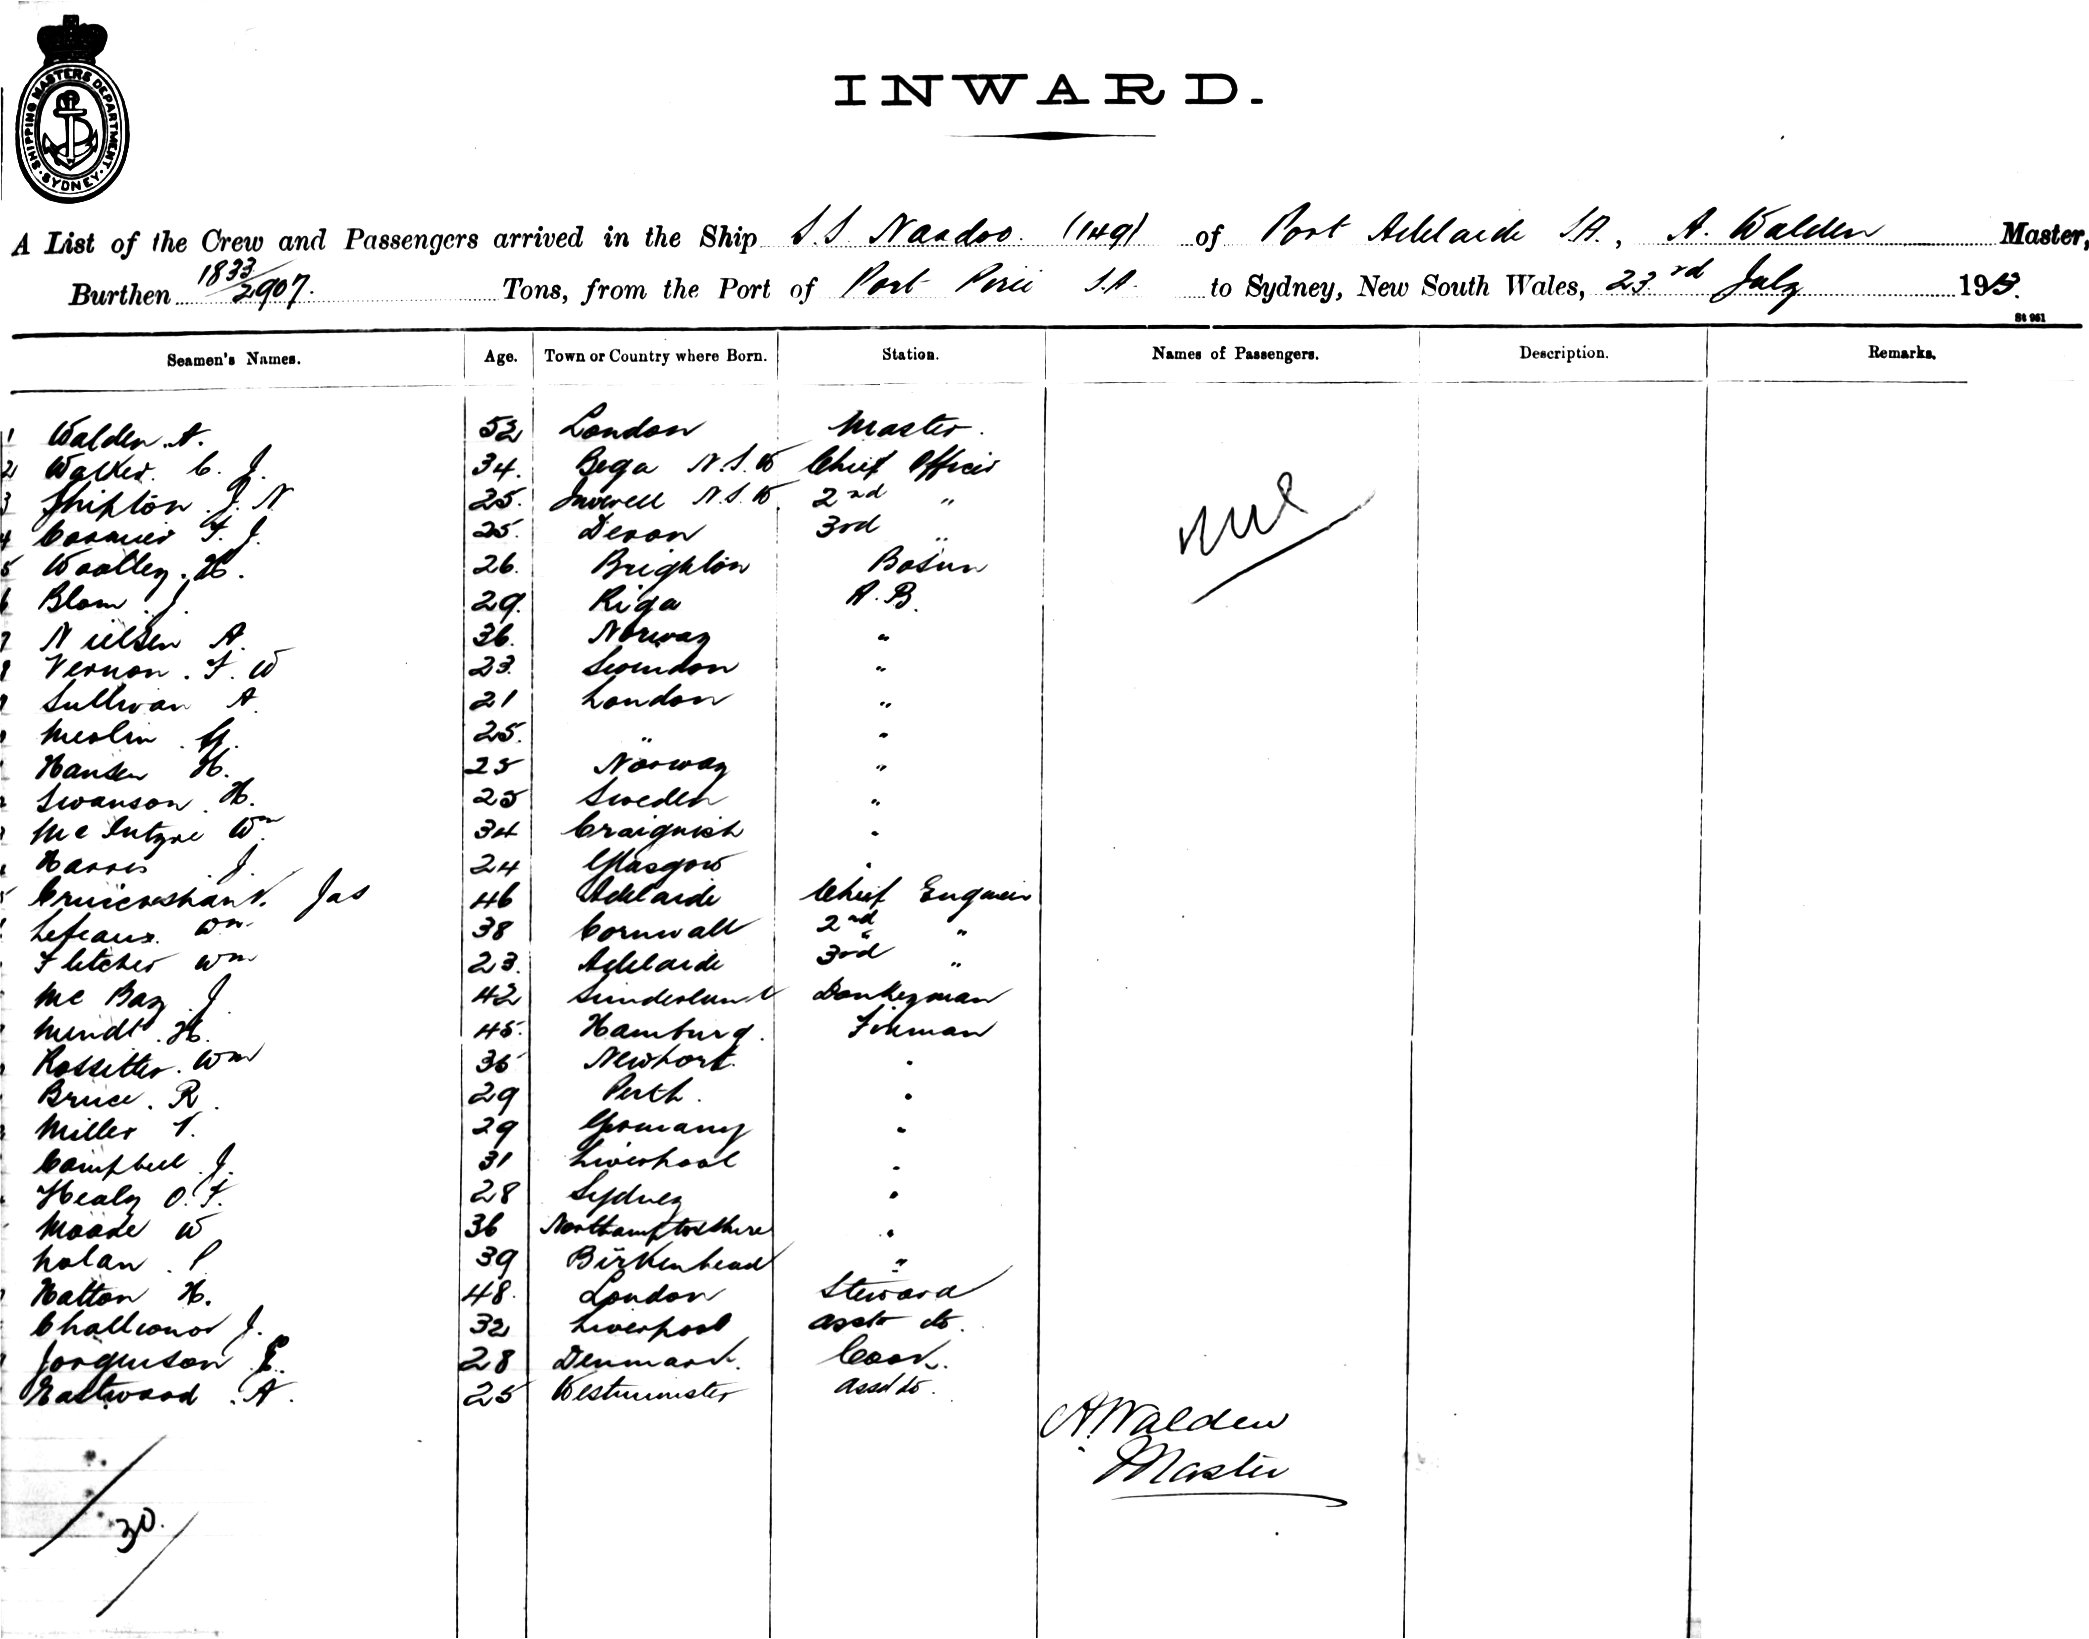 SHIPPING MASTERS DEPARTMENT. SYDNEY.
INWARD.
A List of the Crew and Passengers arrived in the Ship S.S. Naadoo. (149) of Port Adelaide S.A., A. Walden Master,
Burthen 1833/2907. Tons, from the Port of Port Pirie S.A. to Sydney, New South Wales, 23rd July 1913.
St 961
Seamen's Names. Age. Town or Country where Born. Station. Names of Passengers. Description. Remarks.
1 Walden. A. 52 London Master.
2 Walker. C. J. 34. Bega N.S.W Chief Officer
3 Shipton. J. N 25. Inverell N.S.W. 2nd "
4 F. J. 25. Devon 3rd "
nil
5 Woolley. H. 26. Brighton Bosun
6 Blom. J. 29. Riga A.B.
7 Nielsen A. 36. Norway "
8 Vernon. F. W 23. Swindon "
9 Sullivan A. 21 London "
Merlin. G. 25. " "
Hansen H. 25 Norway "
Swanson. H. 25 Sweden "
McIntyre Wm 34 Craignish "
Harris J. 24 Glasgow "
Cruickshank. Jas 46 Adelaide Chief Engineer
Lefeaux. Wm. 38 Cornwall 2nd "
Fletcher Wm 23. Adelaide 3rd "
Mc Bay J. 42 Sunderland Donkeyman
Mindt. H. 45. Hamburg. Fireman
Rossitter. Wm 35 Newport. "
Bruce. R. 29 Perth. "
Miller T. 29 Germany "
Campbell. J. 31 Liverpool "
Healy O. F. 28 Sydney "
Moore W 36 Northamptonshire "
Nolan. P. 39 Birkenhead "
Hatton H. 48. London Steward
Challonor J. 32 Liverpool Asst do.
Jorgenson E. 28 Denmark. Cook.
Eastwood. A. 25 Westminster Asst do.
A. Walden
Master
30.